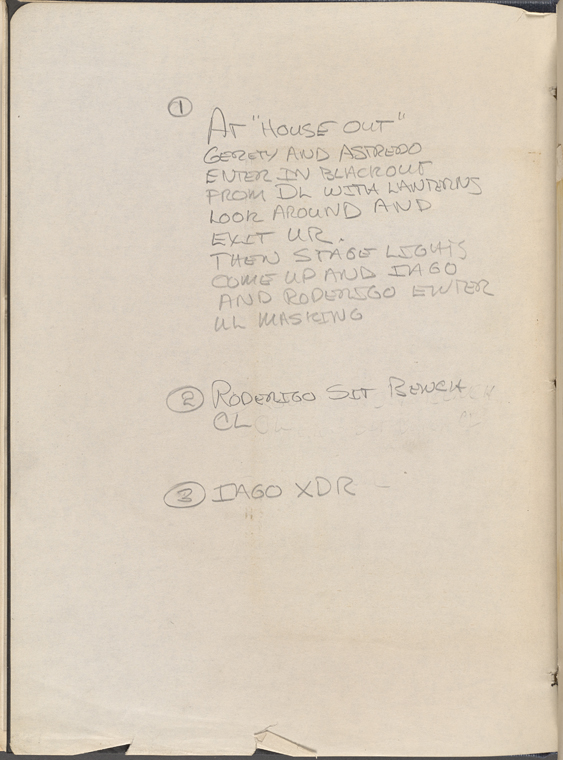 ① AT "HOUSE OUT"
GERETY AND ASTREDO
ENTER IN BLACKOUT
FROM DL WITH LANTERNS
LOOK AROUND AND
EXIT UR.
THEN STAGE LIGHTS
COME UP AND IAGO
AND RODERIGO ENTER
UL MASKING
② RODERIGO SIT BENCH
CL
③ IAGO XDR -